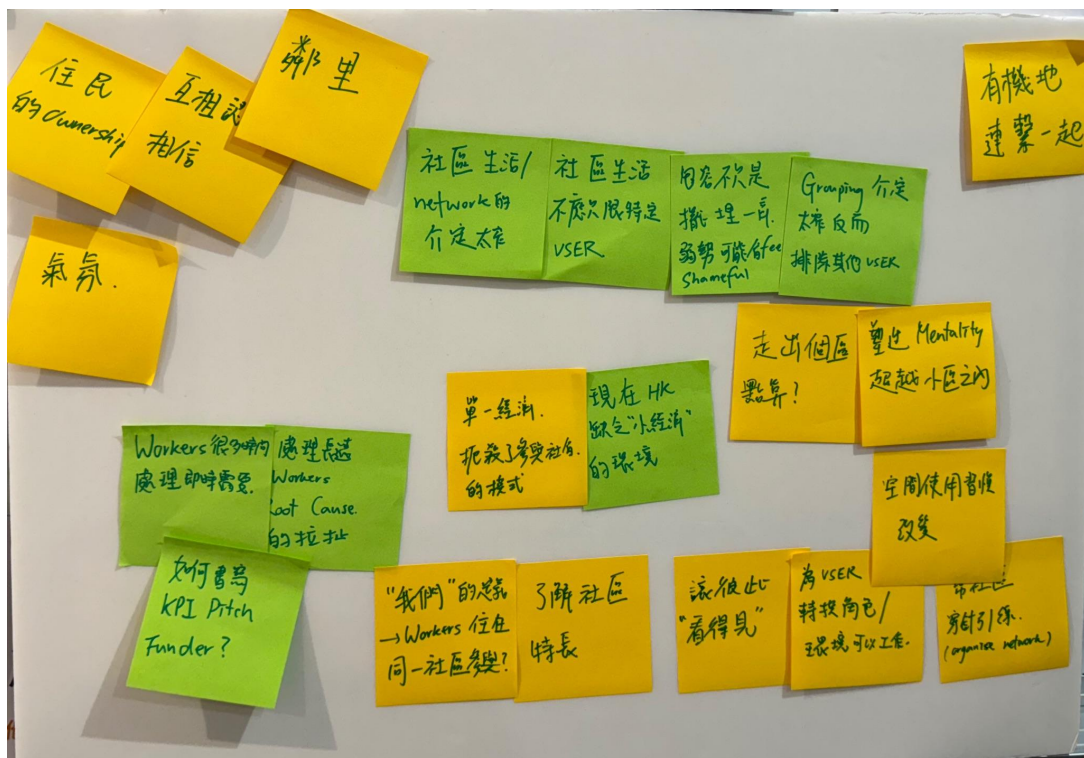 住民
的 Ownership
互相
相信
鄰里
氣氛.
有機地
連繫一起
社區生活/
network的
介定太窄
社區生活
不應只限特定
USER
用者不只是
弱勢可能會fee
Shameful
Grouping 介定
太窄反而
排除其他USER
走出個區
點算?
塑造 Mentality
超越小區之內
單一經濟.
扼殺了參與社區.
的模式
現在 HK
缺乏"小經濟"
的環境
空間使用習慣
改變
Workers很多時間
處理即時需要
處理長遠
Workers
oot Cause.
的拉扯
如何書寫
KPI Pitch
Funder?
"我們"的
→Workers 住在
同一社區參與?
了解社區
特長
讓彼此
"看得見"
為USER
轉換角色/
環境可以工作.
社區
穿針引線.
(organise network)